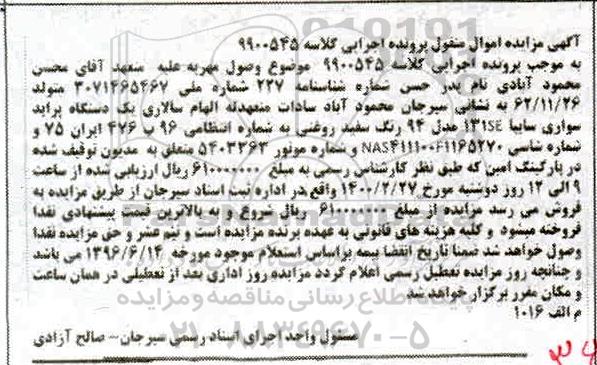 آگهی مزایده اموال منقول پرونده اجرایی کلاسه ۹۹۰۰۵۴۵
به موجب پرونده اجرایی کلاسه ۹۹۰۰۵۴۵ موضوع وصول مهریه علیه متعهد آقای محسن
محمود آبادی نام پدر حسن شماره شناسنامه ۲۲۷ شماره ملی ۳۰۷۱۴۶۵۴۶۷ متولد
۶۲/۱۱/۲۶ به نشانی سیرجان محمود آباد سادات متعهدله الهام سالاری یک دستگاه پراید
سواری سایپا ۱۳۱SE مدل ۹۴ رنگ سفید روغنی به شماره انتظامی ۹۶ ب ۴۷۶ ایران ۷۵ و
شماره شاسی NAS۴۱۱۱۰۰F۱۱۶۵۲۷۰ و شماره موتور ۵۴۰۳۳۶۳ متعلق به مدیون توقیف شده
در پارکینگ امین که طبق نظر کارشناس رسمی به مبلغ ۶۱۰۰۰۰۰۰۰ ریال ارزیابی شده از ساعت
۹ الی ۱۲ روز دوشنبه مورخ ۱۴۰۰/۲/۲۷ واقع در اداره ثبت اسناد سیرجان از طریق مزایده به
فروش می رسد مزایده از مبلغ ۶۱۰۰۰۰۰۰۰ ریال شروع و به بالاترین قیمت پیشنهادی نقدا
فروخته میشود و کلیه هزینه های قانونی به عهده برنده مزایده است و نیم عشر و حق مزایده نقدا
وصول خواهد شد ضمنا تاریخ انقضا بیمه براساس استعلام موجود مورخه ۱۳۹۶/۶/۱۴ می باشد
و چنانچه روز مزایده تعطیل رسمی اعلام گردد مزایده روز اداری بعد از تعطیلی در همان ساعت
و مکان مقرر برگزار خواهد شد
م الف ۱۰۱۶
پایگاه اطلاع رسانی مناقصه و مزایده
مسئول واحد اجرای اسناد رسمی سیرجان- صالح آزادی
۰۲۱-۸۸۳۴۹۶۷۰-۵
۳۴